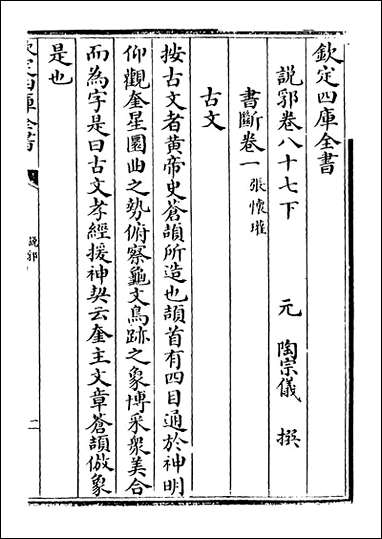 欽定四庫全書
說郛卷八十七下
元 陶宗儀 撰
書斷卷一 張懷瓘
古文
按古文者黃帝史蒼頡所造也頡首有四目通於神明
仰觀奎星圜曲之勢俯察龜文鳥跡之象博采衆美合
而為字是曰古文孝經援神契云奎主文章蒼頡倣象
是也
欽定四庫全書
說郛
二